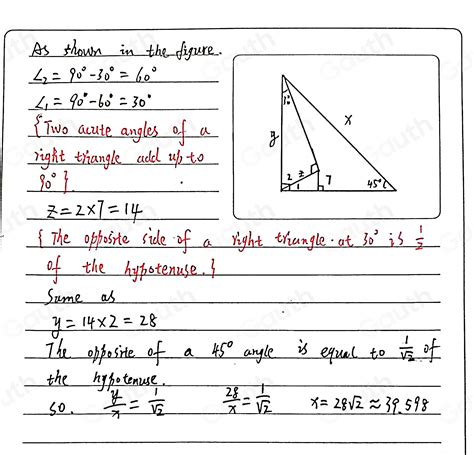 As shown in the figure.
∠2 = 90° - 30° = 60°
∠1 = 90° - 60° = 30°
{Two acute angles of a
right triangle add up to
90°}.
z = 2 × 7 = 14
{The opposite side of a right triangle at 30° is 1/2
of the hypotenuse.}
Same as
y = 14 × 2 = 28
The opposite of a 45° angle is equal to 1/√2 of
the hypotenuse.
so. y/x = 1/√2 28/x = 1/√2 x = 28√2 ≈ 39.598
30°
x
y
2 z
1 7 45°
Gauth